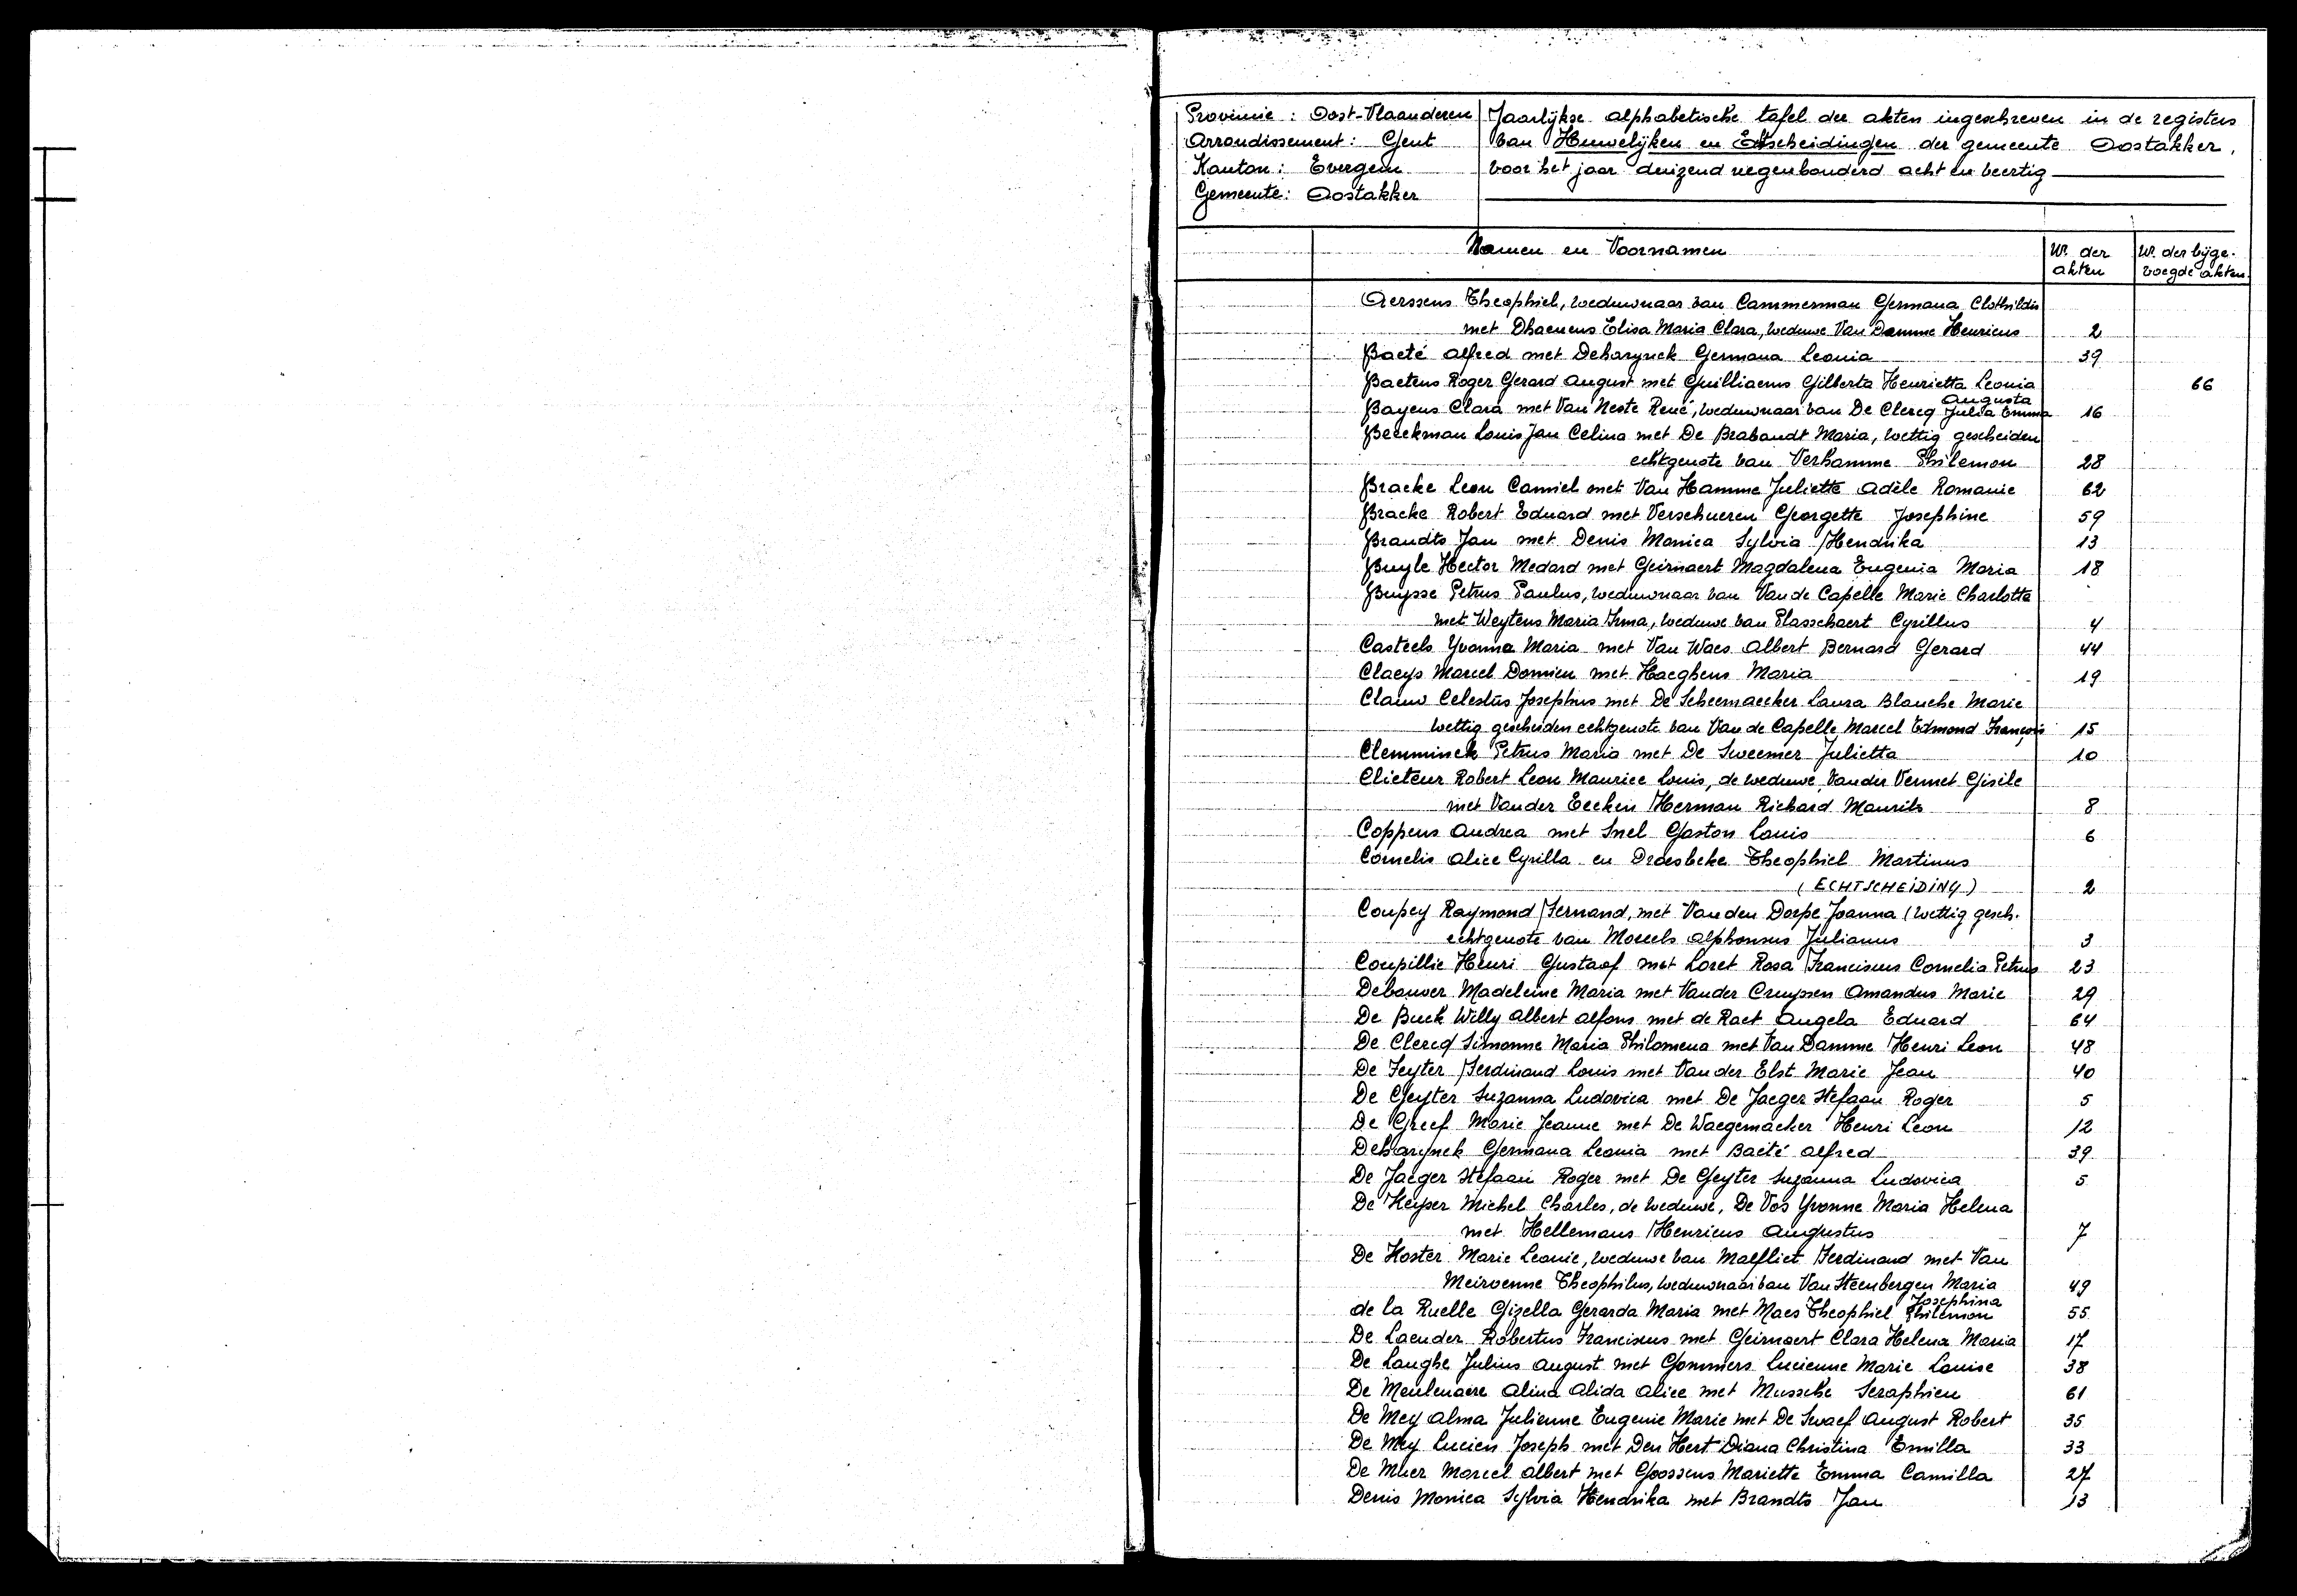 Provincie : Oost-Vlaanderen
Arrondissement : Gent
Kanton : Evergem
Gemeente : Oostakker
Jaarlijkse alphabetische tafel der akten ingeschreven in de registers
van Huwelijken en Echtscheidingen der gemeente Oostakker,
voor het jaar duizend negenhonderd acht en veertig
Namen en Voornamen Nr. der akten Nr. der bijge-voegde akten.
Aerssens Theophiel, weduwnaar van Cammerman Germana Clothildis
met Dhaenens Elisa Maria Clara, weduwe Van Damme Henricus 2
Baeté Alfred met Deharynck Germana Leonia 39
Baetens Roger Gerard August met Guilliaems Gilberta Henrietta Leonia 66
Augusta
Bayens Clara met Van Neste René, weduwnaar van De Clercq Julia Emma 16
Beeckman Louis Jan Celina met De Brabandt Maria, wettig gescheiden
echtgenote van Verhamme Philemon 28
Bracke Leon Camiel met Van Hamme Juliette Adèle Romanie 62
Bracke Robert Eduard met Verschueren Georgette Josephine 59
Brandts Jan met Denis Monica Sylvia Hendrika 13
Buyle Hector Medard met Geirnaert Magdalena Eugenia Maria 18
Buysse Petrus Paulus, weduwnaar van Van de Capelle Marie Charlotte
met Weytens Maria Irma, weduwe van Plasschaert Cyrillus 4
Casteels Yvonna Maria met Van Waes Albert Bernard Gerard 44
Claeys Marcel Domien met Haeghens Maria 19
Clauw Celestus Josephus met De Scheemaecker Laura Blanche Marie
wettig gescheiden echtgenote van Van de Capelle Marcel Edmond François 15
Clemminck Petrus Maria met De Sweemer Julietta 10
Clieteur Robert Leon Maurice Louis, de weduwe, Vander Vennet Gisile
met Vander Eecken Herman Richard Maurits 8
Coppens Andrea met Snel Gaston Louis 6
Cornelis Alice Cyrilla en Draesbeke Theophiel Martinus
(ECHTSCHEIDING) 2
Coupey Raymond Fernand, met Van den Dorpe Joanna (wettig gesch.
echtgenote van Moreels Alphonsus Julianus 3
Coupillie Henri Gustaaf met Loret Rosa Franciscus Cornelia Petrus 23
Debouver Madeleine Maria met Vander Cruyssen Amandus Marie 29
De Buck Willy Albert Alfons met de Raet Angela Eduard 64
De Clercq Simonne Maria Philomena met Van Damme Henri Leon 48
De Feyter Ferdinand Louis met Van der Elst Marie Jean 40
De Geyter Suzanna Ludovica met De Jaeger Stefaan Roger 5
De Greef Marie Jeanne met De Waegemacker Henri Leon 12
Deharynck Germana Leonia met Baeté Alfred 39
De Jaeger Stefaan Roger met De Geyter Suzanna Ludovica 5
De Keyser Michel Charles, de weduwe, De Vos Yvonne Maria Helena
met Hellemans Henricus Augustus 7
De Koster Marie Leonie, weduwe van Maefliet Ferdinand met Van
Meirvenne Theophilus, weduwnaar van Van Steenbergen Maria 49
Josephina
de la Ruelle Gizella Gerarda Maria met Maes Theophiel Philemon 55
De Laender Robertus Franciscus met Geirnaert Clara Helena Maria 17
De Langhe Julius August met Gommers Lucienne Marie Louise 38
De Meulenaere Alina Alida Alice met Mussche Seraphien 61
De Mey Alma Julienne Eugenie Marie met De Swaef August Robert 35
De Mey Lucien Joseph met Den Hert Diana Christina Emilla 33
De Muer Marcel Albert met Goossens Mariette Emma Camilla 27
Denis Monica Sylvia Hendrika met Brandts Jan 13